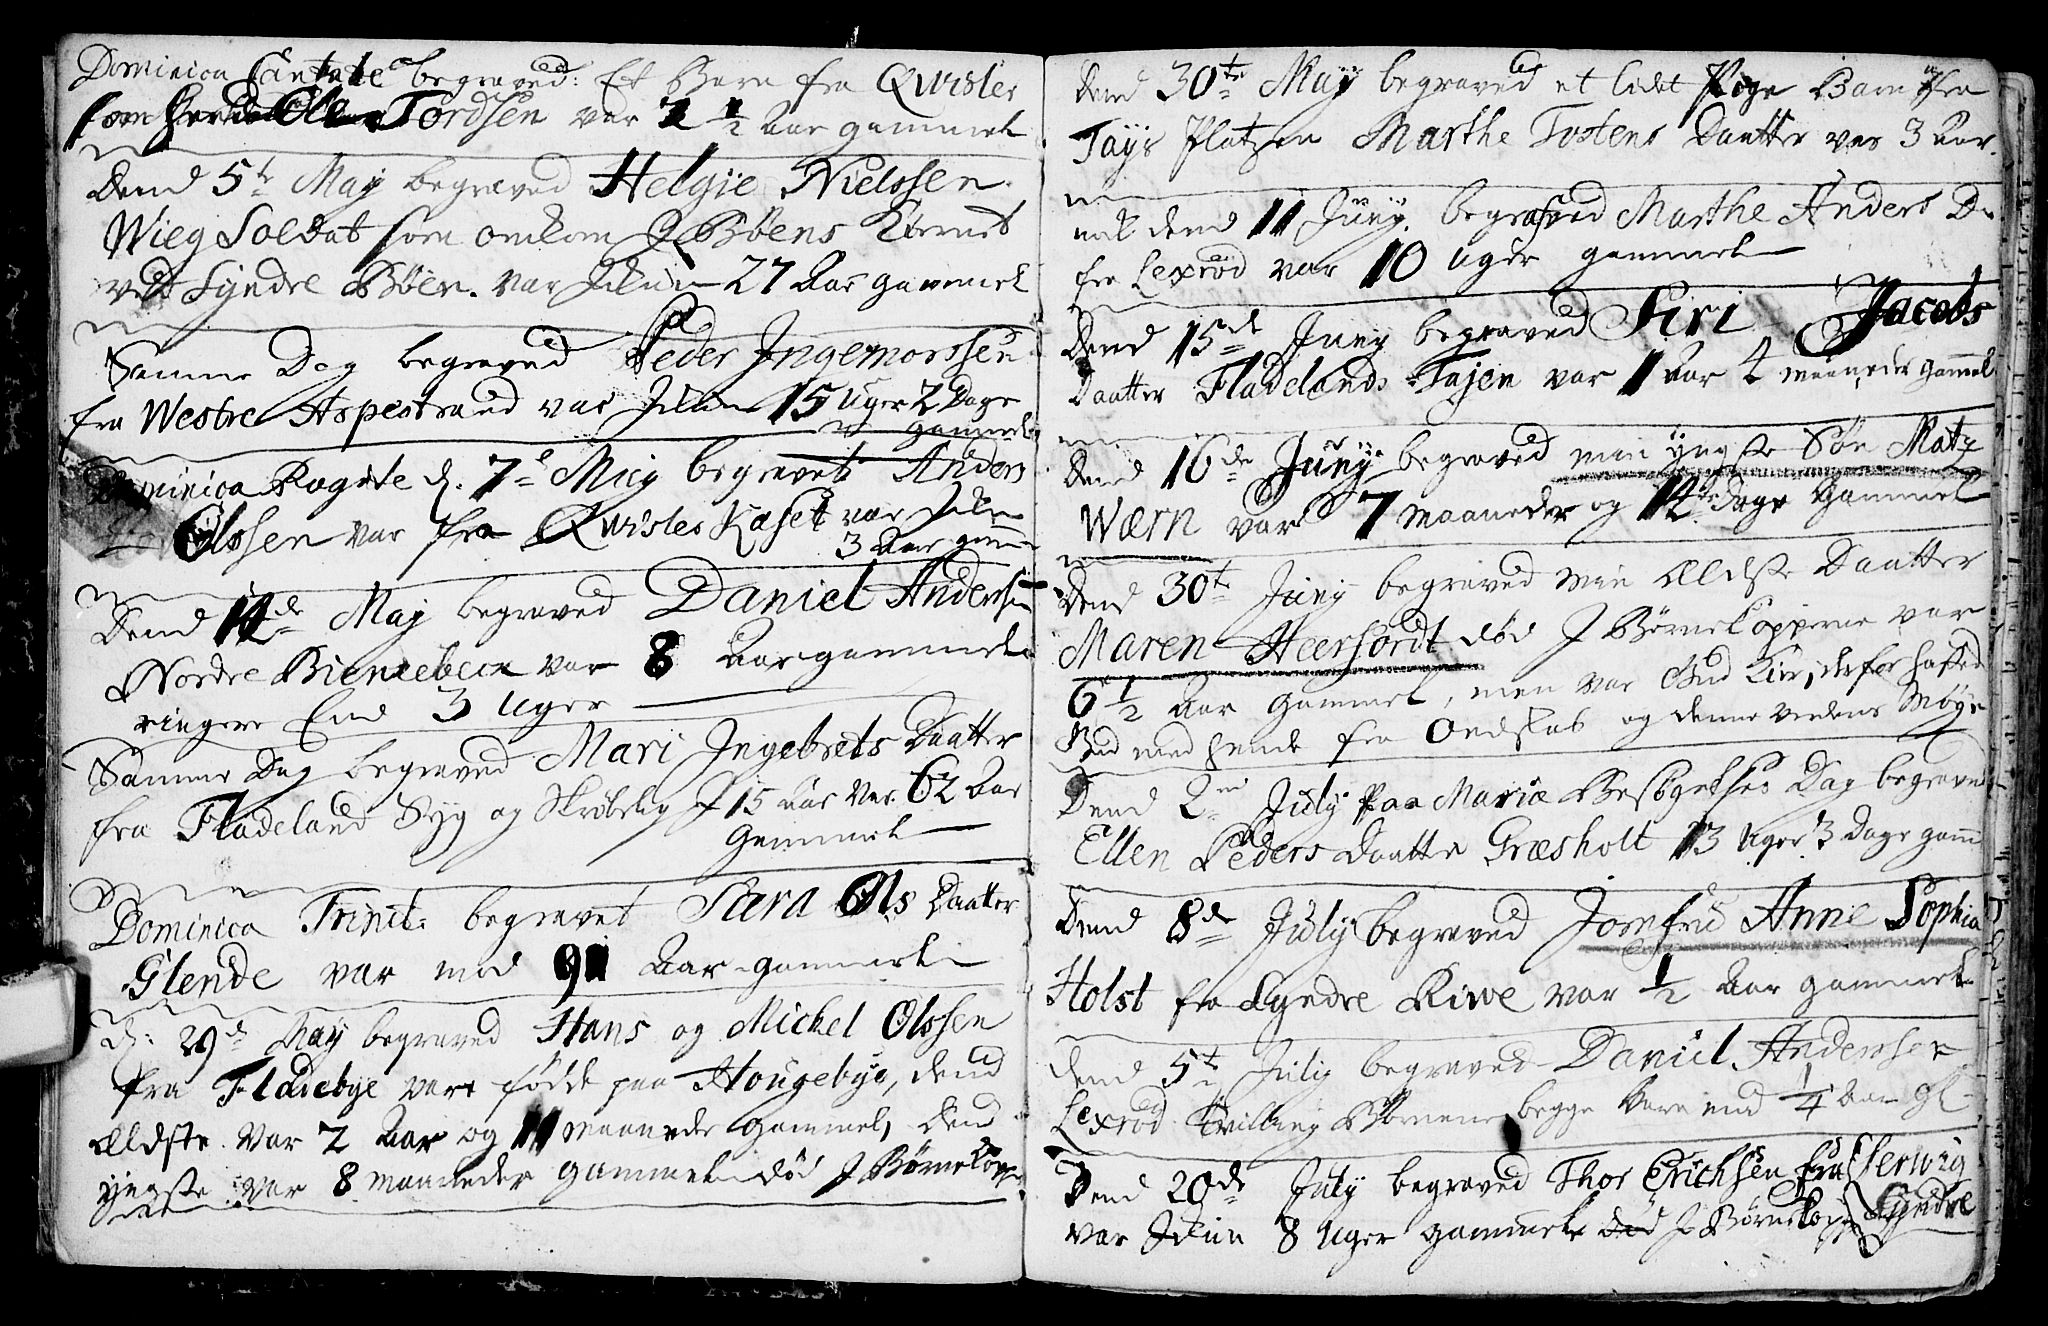 Dominica Cantate begraved: Et Barn fra Qvisler
som heed Ole Tordsen var 2 1/2 Aar gammel
Dend 5te May begraved Helgie Nielssen
Wieg Soldat som omkom J Böens Tiernet
ved Syndre Böen. var Alene 27 Aar gammel
Samme Dag begraved Peder Ingemorssen
fra Westre Aspestrand var Alene 15 Uger 2 Dage
gammel
Dominica Rogate d. 7de May begravet Anders
Olssen var fra Qvisler Kaset var
3 Aar gamm
Dend 14de May begraved Daniel Anderssen
Nordre Bienebeck var 8 Aar gammel
ringere End 3 Uger
Samme Dag begraved Mari Ingebrets Daatter
fra Fladeland Syg og Skröbelig J 15 Aar var 62 Aar
Gammel
Dominica Trinit: begravet Sara Ols Daatter
Glende var mod 91 Aar gammel
d: 29de May begraved Hans og Michel Olssen
fra Fladebye var födde paa Hougebye, dend
Ældste var 2 Aar og 11 maaneder gammel, dend
yngste var 8 maaneder gammel död J Börnekopp
Dend 30te May begraved et lidet Pige Barn fra
Tajs Platzen Marthe Tostens Daatter var 3 Aar.
nok dend 11 Juny. begraved Marthe Anders D
fra Lexröd var 10 Uger gammel
Dend 15de Juny begraved Siri Jacobs
Daatter Fladelands Tajen var 1 Aar 4 maaneder gammel
Dend 16de Juny begraved min yngste Sön Matz
Wærn var 7 maaneder og 14 dage gammel
Dend 30te Juny begraved min Ældste Daatter
Maren Heerfordt död J Börnekopperne var
6 1/2 Aar gammel, men var Gud kier, derfor hasted
Gud med hende fra Ondskab og denne verdens Möye
Dend 2en July paa Mariæ Besögelses Dag begraved
Ellen Peders Daatter Græsholt 13 Uger 3 Dage gam
Dend 8de July begraved Jomfru Anne Sophia
Holst fra Syndre Kiwe var 1/2 Aar gammel
dend 5te July begraved Daniel Andersen
Lexröd Tvilling Börnene begge var end 1/4 Aar gl
Dend 20de July begraved Thor Erichsen fra Herwig
Syndre
var Alene 8 Uger gammel död J Börnekopp